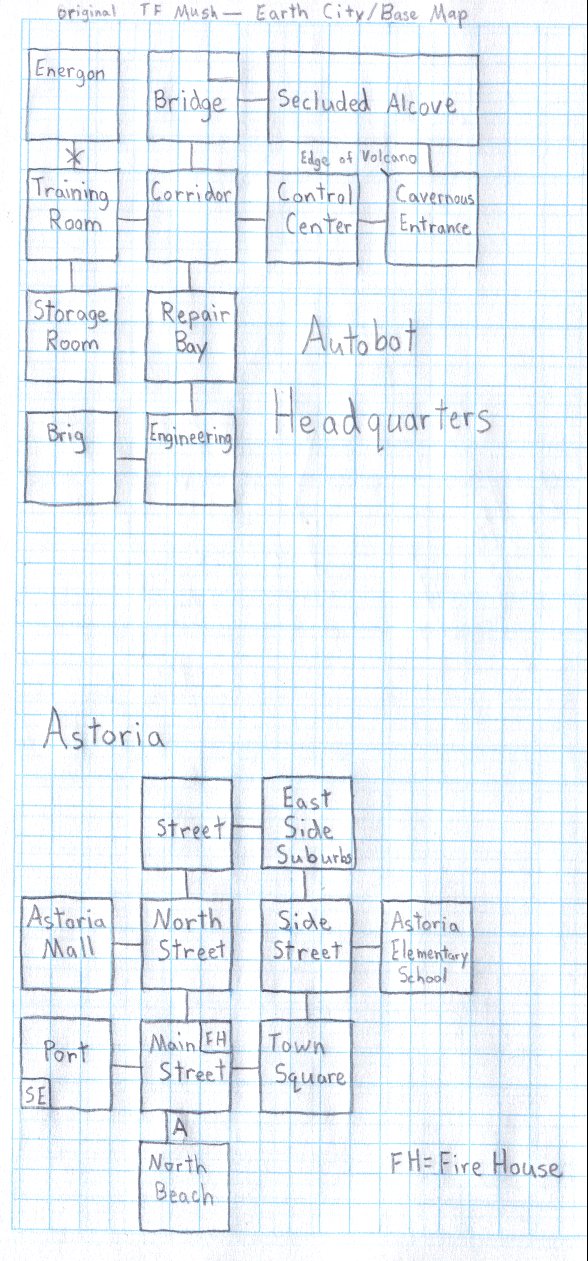 original TF Mush— Earth City/Base Map
Energon
Bridge
Secluded Alcove
Edge of Volcano
Training
Room
Corridor
Control
Center
Cavernous
Entrance
Storage
Room
Repair
Bay
Autobot
Headquarters
Brig
Engineering
Astoria
Street
East
Side
Suburbs
Astoria
Mall
North
Street
Side
Street
Astoria
Elementary
School
Port
SE
Main
FH
Street
Town
Square
A
North
Beach
FH=Fire House